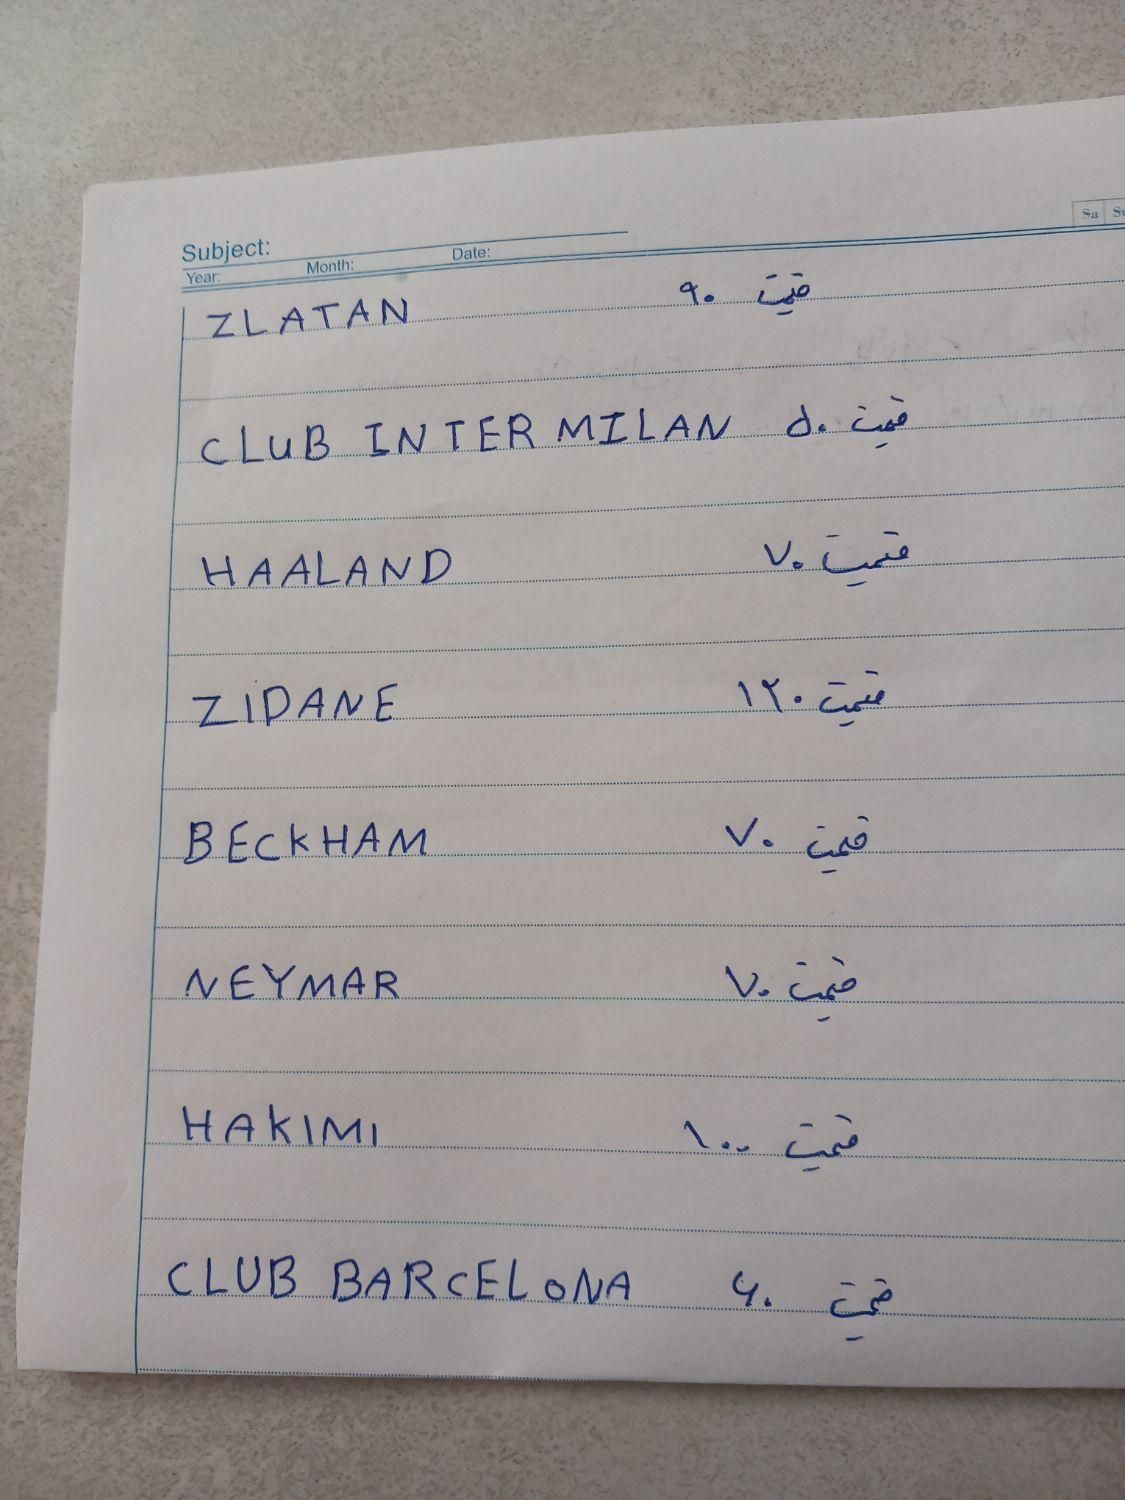 Sa Su
Subject:
Year: Month: Date:
ZLATAN ۹۰ قیمت
CLUB INTER MILAN ۵۰ قیمت
HAALAND ۷۰ قیمت
ZIDANE ۱۲۰ قیمت
BECKHAM ۷۰ قیمت
NEYMAR ۷۰ قیمت
HAKIMI ۱۰۰ قیمت
CLUB BARCELONA ۶۰ قیمت